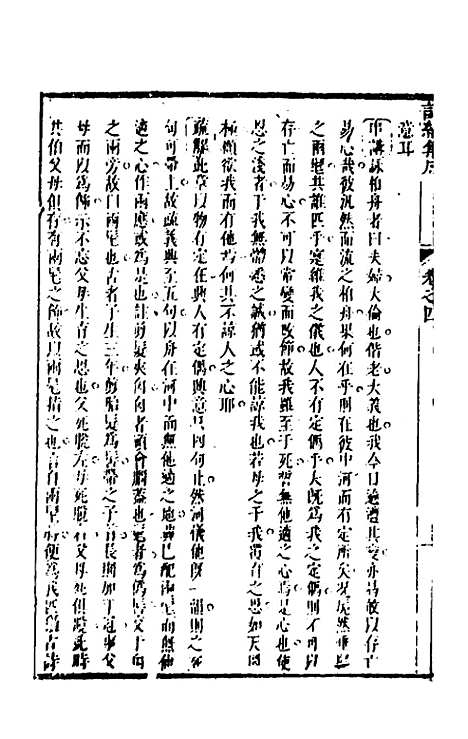 諒耳
串講詠柏舟者曰夫婦大倫也偕老大義也我今日適遭其變亦為敢以存亡
易心哉彼汎然而流之柏舟果何在乎則在彼中河而有定所矣髧然垂
之兩髦其誰匹乎寔維我之儀也人不有定偶乎夫既為我之定偶則不可以
存亡而易心不可以常變而改節故我雖至于死誓無他適之心焉是心也使
恩之淺者于我無體悉之誠猶或不能諒我也若母之于我育之恩如天罔
極顧欲我而有他焉何其不諒人之心耶
疏解此章以物有定在興人有定偶興意只兩句止然河儀他既一韻則之死
句可帶上故疏義興至五句以舟在河中而無他適之地興已配兩髦而無他
適之心作兩應或為是也註剪髮夾囟囟者頭會腦蓋也髦者為偶髮父母
之兩旁故曰兩髦也古者子生三年剪胎髮為髦帶之子首長則加于冠奉父
母而以為飾示不忘父母生育之恩也父死脫左母死脫右父母死但殯死時
共伯父母但存有兩髦之飾故以兩髦指之也言自兩髦便為我